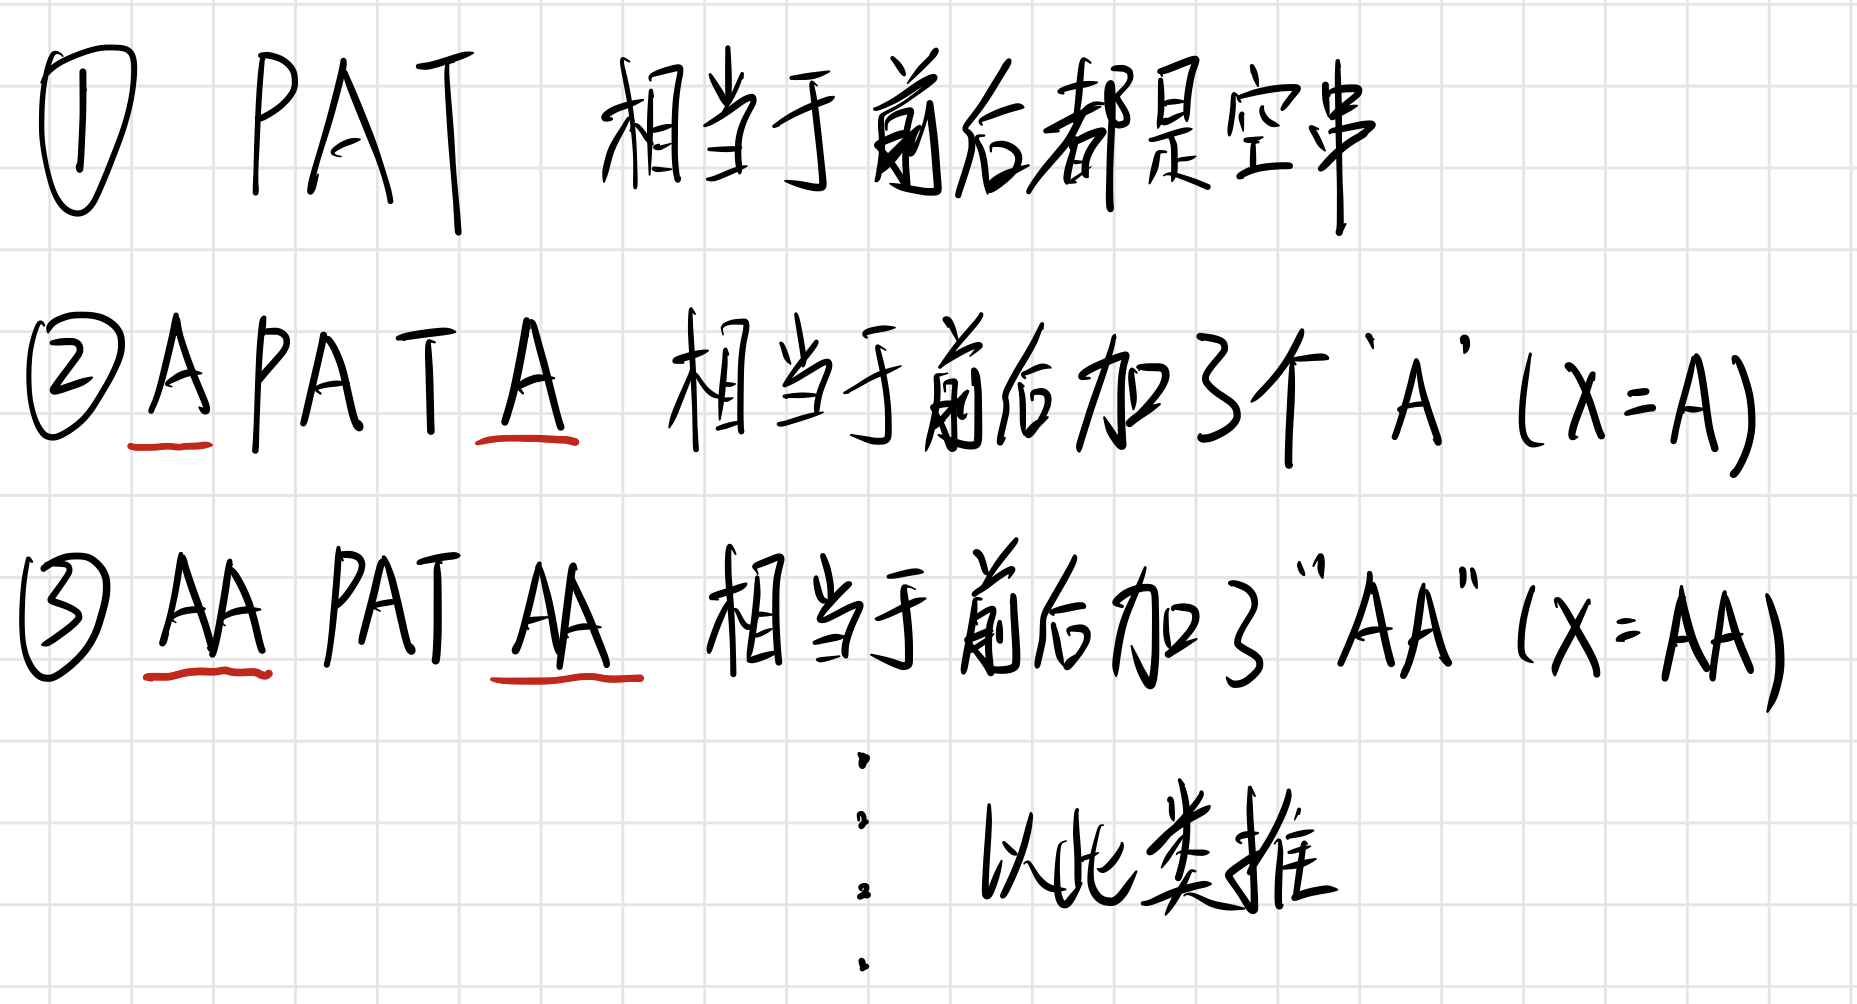 ① PAT 相当于前后都是空串
② A PAT A 相当于前后加了个'A' (X=A)
③ AA PAT AA 相当于前后加了"AA" (X=AA)
以此类推